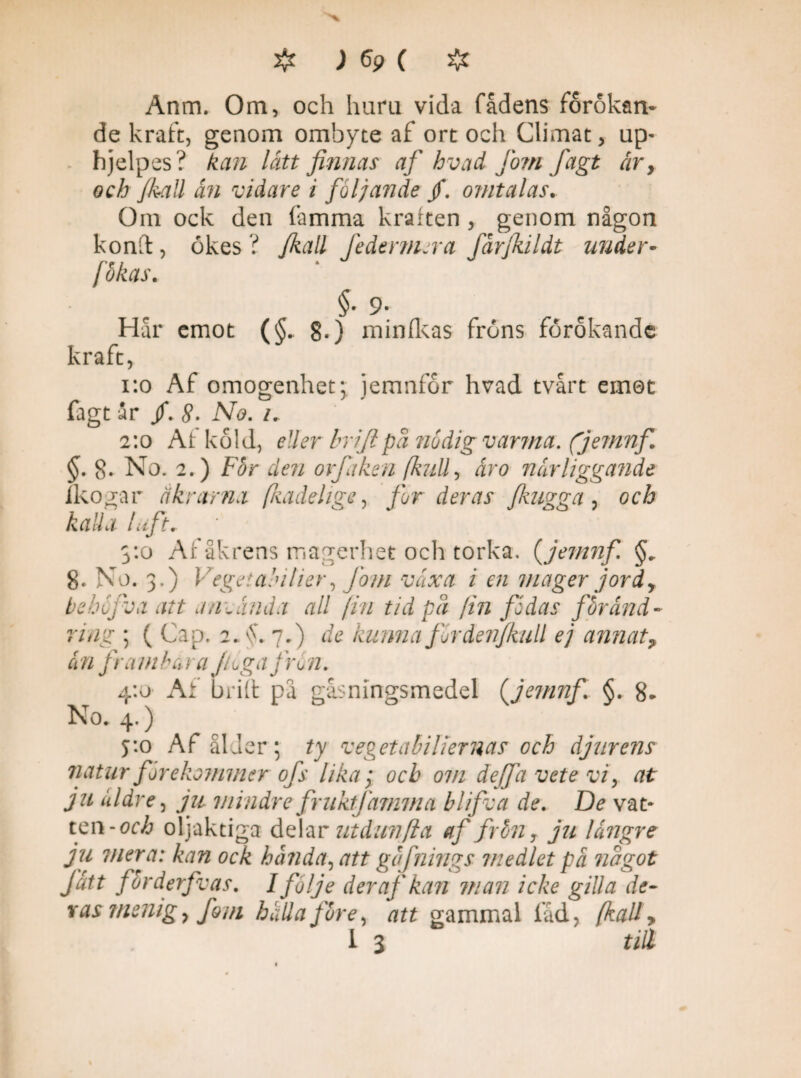 ☼ ) 69 ( ☼
Anm. Om, och huru vida ſådens förökan-
de kraft, genom ombyte af ort och Climat, up-
hjelpes? kan lätt finnas af hvad ſom ſagt är,
och ſkall än vidare i följande §. omtalas.
Om ock den ſamma kraften, genom någon
konſt, ökes? ſkall ſedermera färſkildt under-
ſökas.
§. 9.
Här emot (§. 8.) minſkas fröns förökande
kraft,
1:o Af omogenhet; jemnför hvad tvärt emot
ſagt är §. 8. No. 1.
2:o Af köld, eller briſt på nödig varma. (jemnf.
§. 8. No. 2.) För den orſaken ſkull, äro närliggande
ſkogar åkrarna ſkadelige, för deras ſkugga, och
kalla luft.
3:o Af åkrens magerhet och torka. (jemnf. §.
8. No. 3.) Vegetabilier, ſom växa i en mager jord,
behöfva att använda all ſin tid på ſin födas föränd-
ring; (Cap. 2. §. 7.) de kunna fördenſkull ej annat,
än frambära ſvaga frön.
4:o Af briſt på gäsningsmedel (jemnf. §. 8.
No. 4.)
5:o Af ålder; ty vegetabiliernas och djurens
natur förekommer oſs lika; och om deſſa vete vi, at
ju äldre, ju mindre fruktſamma blifva de. De vat-
ten-och oljaktiga delar utdunſta af frön, ju längre
ju mera: kan ock hända, att gäſnings medlet på något
ſätt förderfvas. I följe deraf kan man icke gilla de-
ras menig, ſom hålla före, att gammal ſäd, ſkall,
I 3 till